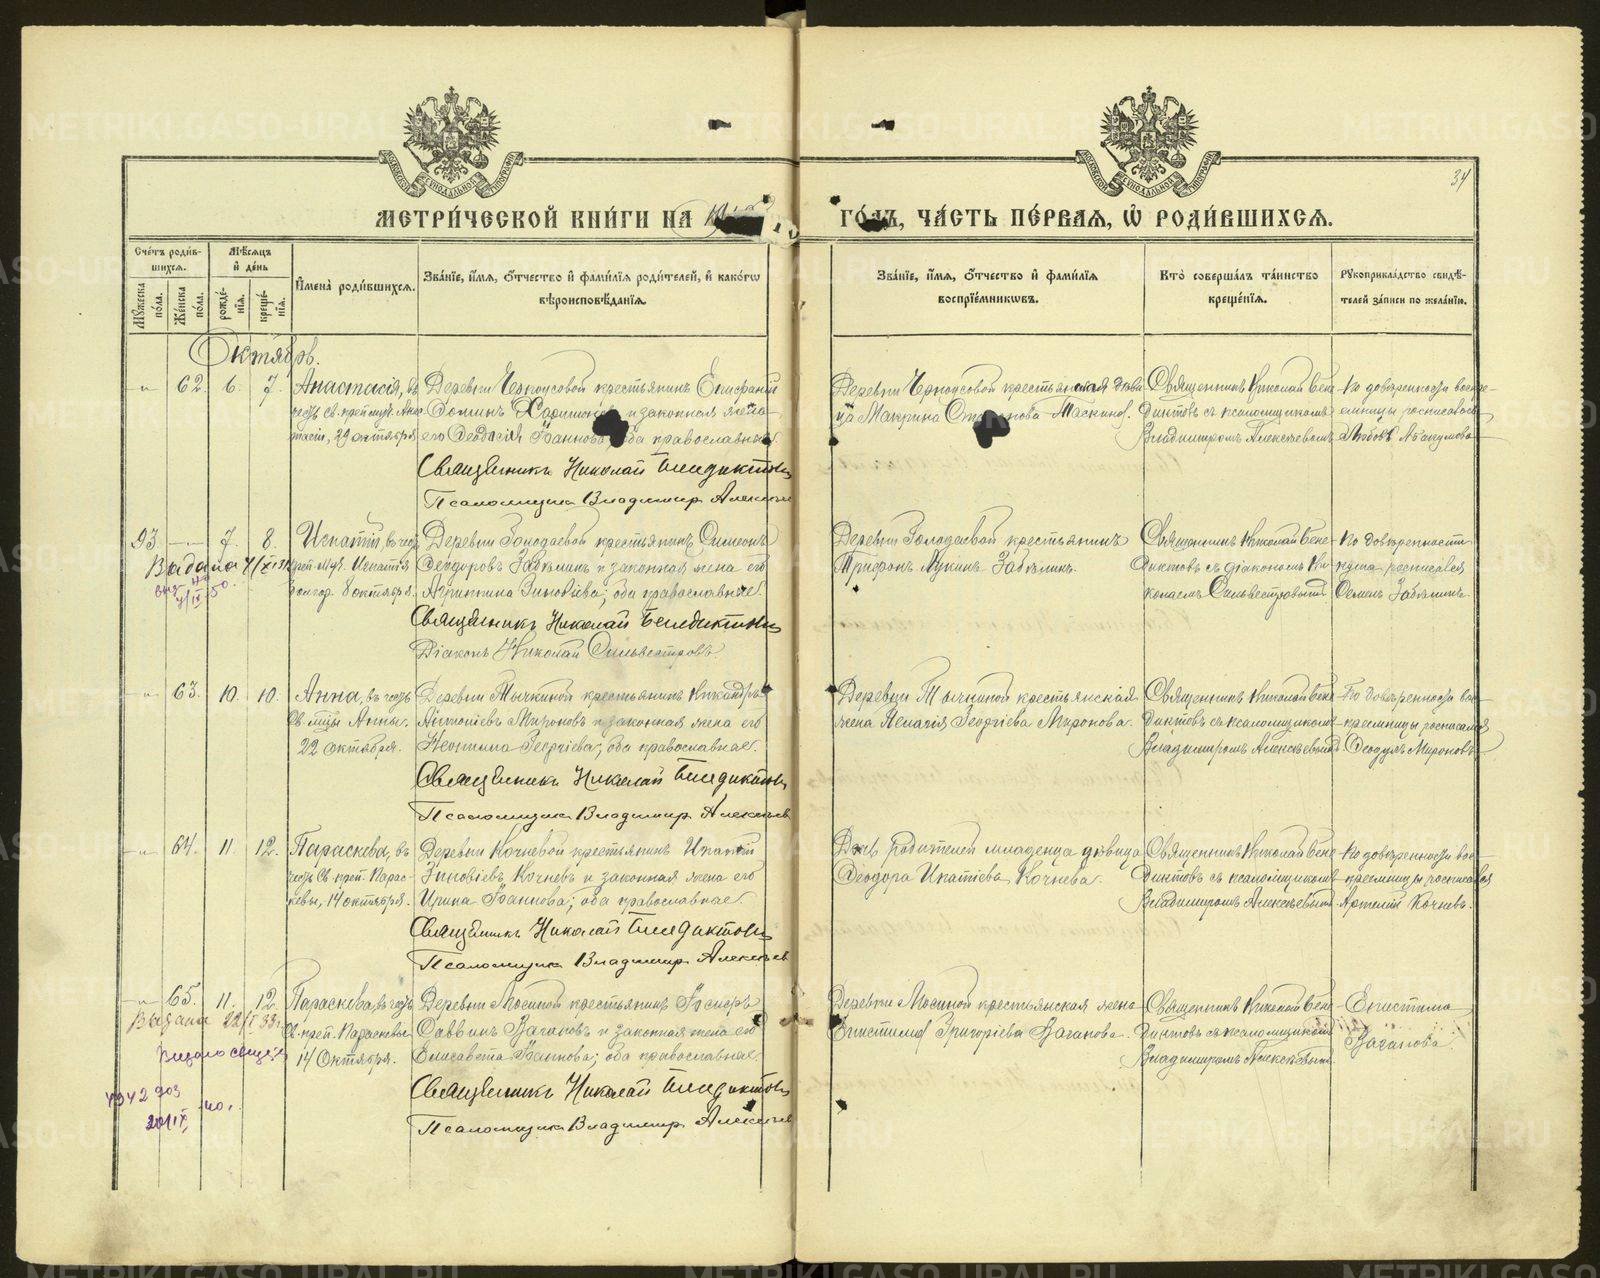 34
МЕТРИ́ЧЕСКОЙ КНИ́ГИ НА 19 ГО́ДЪ, ЧА́СТЬ ПЕ́РВАЯ, Ѿ РОДИ́ВШИХСѦ.
Сче́тъ роди́в-
шихсѧ.
Мꙋ́жеска по́ла.
Же́нска по́ла.
Мѣ́сѧцъ и҆ де́нь
рожде́-
нїѧ.
креще́-
нїѧ.
И҆мена̀ роди́вшихсѧ.
Зва́нїе, и҆́мѧ, ѻ҆́тчество и҆ фами́лїѧ роди́телей, и҆ како́гѡ
вѣроисповѣ́данїѧ.
Зва́нїе, и҆́мѧ, ѻ҆́тчество и҆ фами́лїѧ
воспрїе́мникѡвъ.
Кто̀ соверша́лъ та́инство
креще́нїѧ.
Рꙋкоприкла́дство свидѣ́-
телей за́писи по жела́нїю.
Октябрь.
62. 6. 7.
Анастасія, въ
честь Св. прмуч. Ана-
стасіи, 29 октября
Деревни Черноусовой крестьянинъ Епифаній
и законная жена
его Ѳеодосія Іоаннова, оба православные
Священникъ Николай Бенедиктовъ
Псаломщикъ Владимиръ Алексѣевъ
Деревни Черноусовой крестьянская дѣви-
ца Макрина
Священникъ Николай Бене-
диктовъ съ псаломщикомъ
Владимиромъ Алексѣевымъ
По довѣренности воспрі-
емницы росписалась
Любовь Абакумова
93. 7. 8.
Игнатій, въ честь
Игнатія
Богор. 8 октября.
Деревни Голодаевой крестьянинъ Симеонъ
Ѳеодоровъ Забѣлинъ и законная жена его
Агриппина Зиновіева; оба православные.
Священникъ Николай Бенедиктовъ
Діаконъ Николай Сильвестровъ.
Деревни Голодаевой крестьянинъ
Трифонъ Лукинъ Забѣлинъ.
Священникъ Николай Бене-
диктовъ съ діакономъ Ни-
колаемъ Сильвестровымъ
По довѣренности
росписался
Семенъ Забѣлинъ.
Выдана
63. 10. 10.
Анна, въ честь
Св. мцы Анны.
22 октября.
Деревни Тычкиной крестьянинъ Никандръ
Антоніевъ Мироновъ и законная жена его
Неонила Георгіева; оба православные.
Священникъ Николай Бенедиктовъ
Псаломщикъ Владимиръ Алексѣевъ
Деревни Тычкиной крестьянская
жена Пелагія Георгіева Миронова.
Священникъ Николай Бене-
диктовъ съ псаломщикомъ
Владимиромъ Алексѣевымъ
По довѣренности вос-
пріемницы росписался
Ѳеодулъ Мироновъ
64. 11. 12.
Параскева, въ
честь Св. прп. Парас-
кевы, 14 октября.
Деревни Кочневой крестьянинъ Ипатій
Зиновіевъ Кочневъ и законная жена его
Ирина Іоаннова; оба православные.
Священникъ Николай Бенедиктовъ
Псаломщикъ Владимиръ Алексѣевъ
родителей младенца дѣвица
Ѳеодора Ипатіева Кочнева.
Священникъ Николай Бене-
диктовъ съ псаломщикомъ
Владимиромъ Алексѣевымъ
По довѣренности вос-
пріемницы росписался
Артемій Кочневъ.
65. 11. 12.
Параскева, въ честь
Св. прп. Параскевы
14 Октября.
Деревни Мосиной крестьянинъ
Саввинъ Ваганова и законная жена его
Елисавета Іоаннова; оба православные.
Священникъ Николай Бенедиктовъ
Псаломщикъ Владимиръ Алексѣевъ
Деревни Мосиной крестьянская жена
Епистимія Григоріева Ваганова.
Священникъ Николай Бене-
диктовъ съ псаломщикомъ
Владимиромъ Алексѣевымъ
Епистимія
Ваганова.
Выдана 22/I 33 г.
METRIKI.GASO-URAL.RU